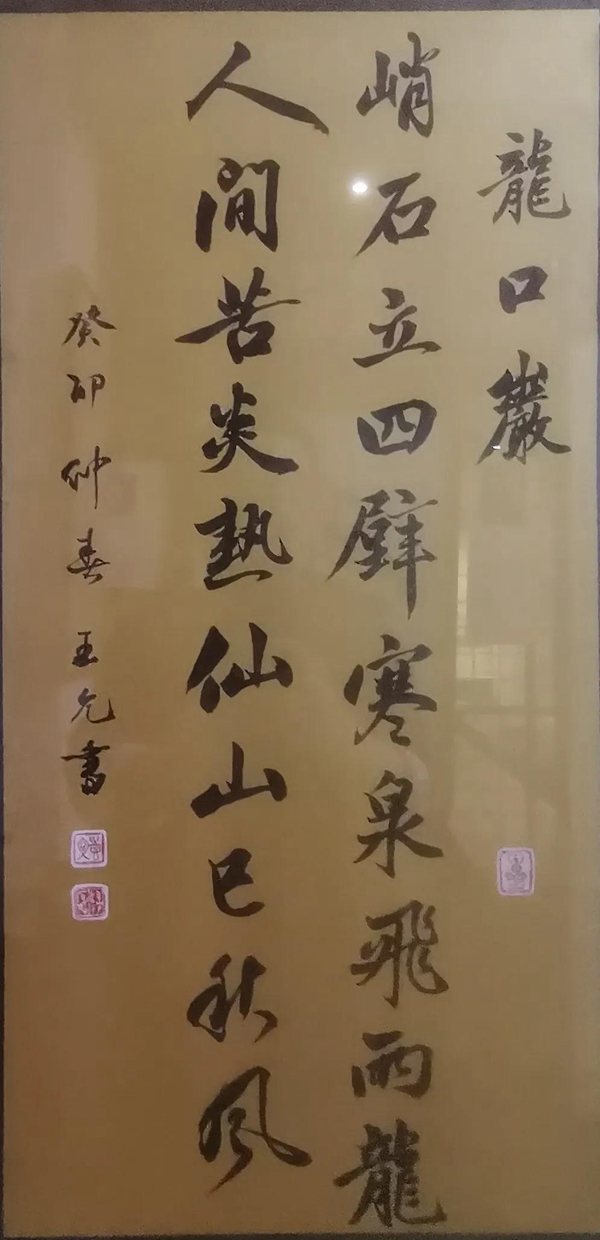 龍口巖
峭石立四壁寒泉飛兩龍
人間苦炎熱仙山已秋風
癸卯仲春 王允書